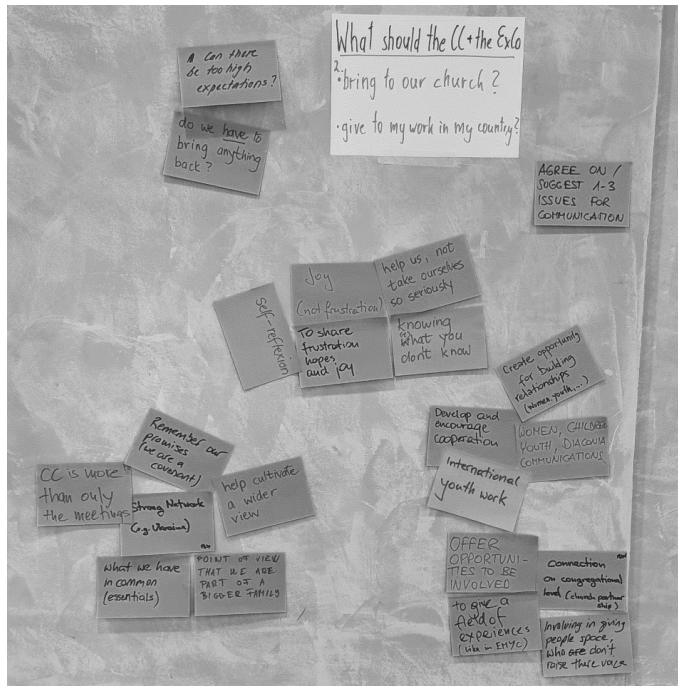 What should the CC + the ExCo
2.
• bring to our church?
• give to my work in my country?
Can there
be too high
expectations?
do we have to
bring anything
back?
AGREE ON /
SUGGEST 1-3
ISSUES FOR
COMMUNICATION
self-reflexion
Joy
(not frustration)
help us, not
take ourselves
so seriously
To share
frustration
hopes
and joy
knowing
what you
don't know
Create opportunity
for building
relationships
(women, youth, ...)
Develop and
encourage
cooperation
WOMEN, CHILDREN
YOUTH, DIACONIA
COMMUNICATIONS
International
youth work
Remember our
promises
(we are a
covenant)
CC is more
than only
the meetings
Strong Network
(e.g. Ukraine)
help cultivate
a wider
view
What we have
in common
(essentials)
POINT OF VIEW
THAT WE ARE
PART OF A
BIGGER FAMILY
OFFER
OPPORTUNI-
TIES TO BE
INVOLVED
Connection
on congregational
level (church partner
ship)
to give a
field of
experiences
(like in EMYC)
Involving in giving
people space,
who are don't
raise there voice